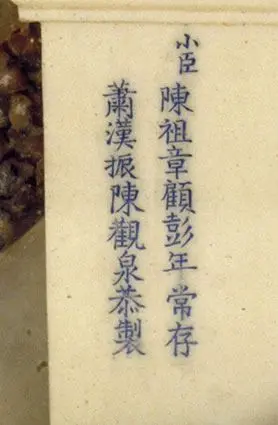 小臣 陳祖章顧彭年常存
蕭漢振陳觀泉恭製